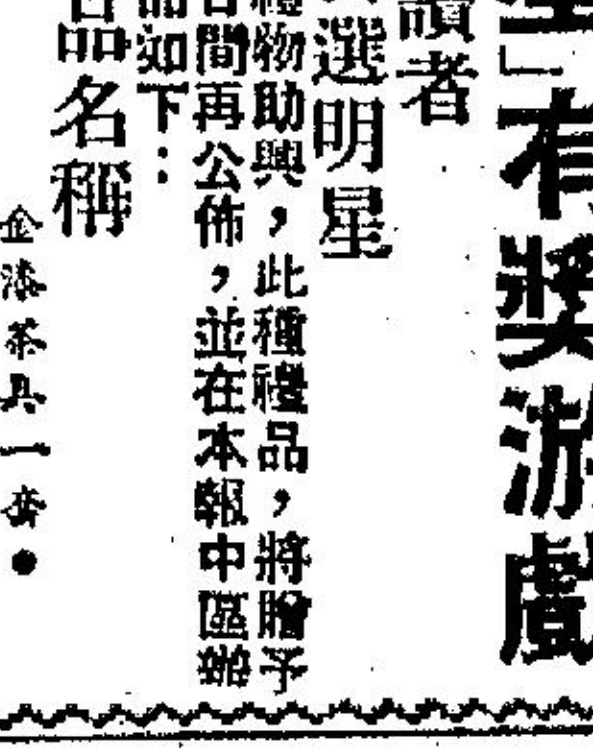 」有獎游戲
讀者
選明星
禮物助興，此種禮品，將贈予
間再公佈，並在本報中區辦
品如下：
品名稱
金漆茶具一套●